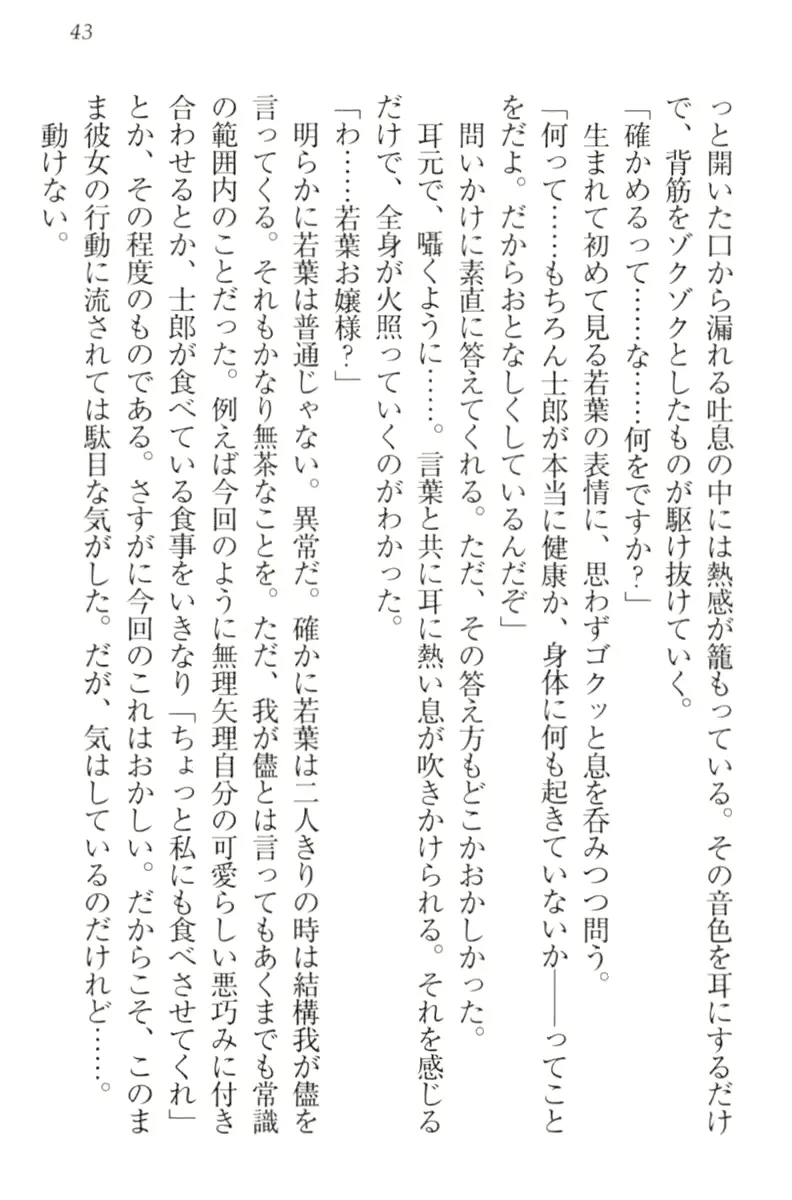 43
っと開いた口から漏れる吐息の中には熱感が籠もっている。その音色を耳にするだけ
で、背筋をゾクゾクとしたものが駆け抜けていく。
「確かめるって……な……何をですか？」
生まれて初めて見る若葉の表情に、思わずゴクッと息を呑みつつ問う。
「何って……もちろん士郎が本当に健康か、身体に何も起きていないか――ってこと
をだよ。だからおとなしくしているんだぞ」
問いかけに素直に答えてくれる。ただ、その答え方もどこかおかしかった。
耳元で、囁くように……。言葉と共に耳に熱い息が吹きかけられる。それを感じる
だけで、全身が火照っていくのがわかった。
「わ……若葉お嬢様？」
明らかに若葉は普通じゃない。異常だ。確かに若葉は二人きりの時は結構我が儘を
言ってくる。それもかなり無茶なことを。ただ、我が儘とは言ってもあくまでも常識
の範囲内のことだった。例えば今回のように無理矢理自分の可愛らしい悪巧みに付き
合わせるとか、士郎が食べている食事をいきなり「ちょっと私にも食べさせてくれ」
とか、その程度のものである。さすがに今回のこれはおかしい。だからこそ、このま
ま彼女の行動に流されては駄目な気がした。だが、気はしているのだけれど……。
動けない。